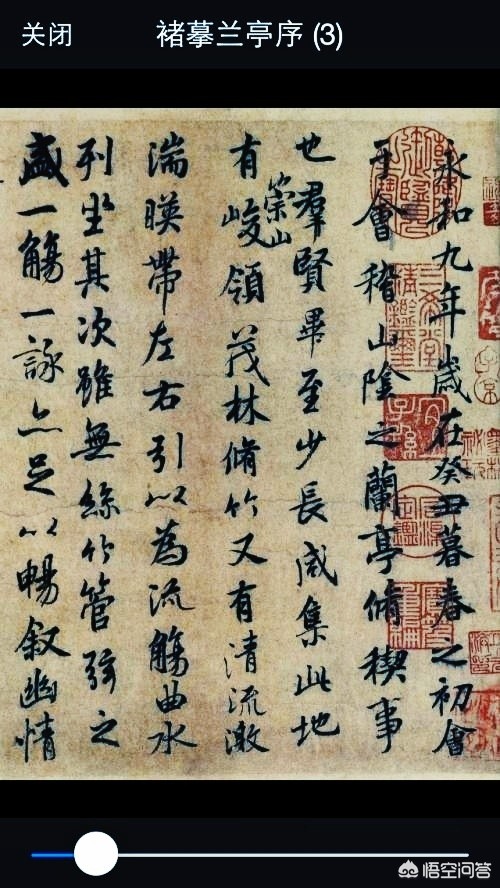 关闭
褚摹兰亭序 (3)
永和九年歲在癸丑暮春之初會
于會稽山陰之蘭亭脩稧事
也羣賢畢至少長咸集此地
有崇山峻領茂林脩竹又有清流激
湍暎帶左右引以為流觴曲水
列坐其次雖無絲竹管弦之
盛一觴一詠亦足以暢叙幽情
悟空问答